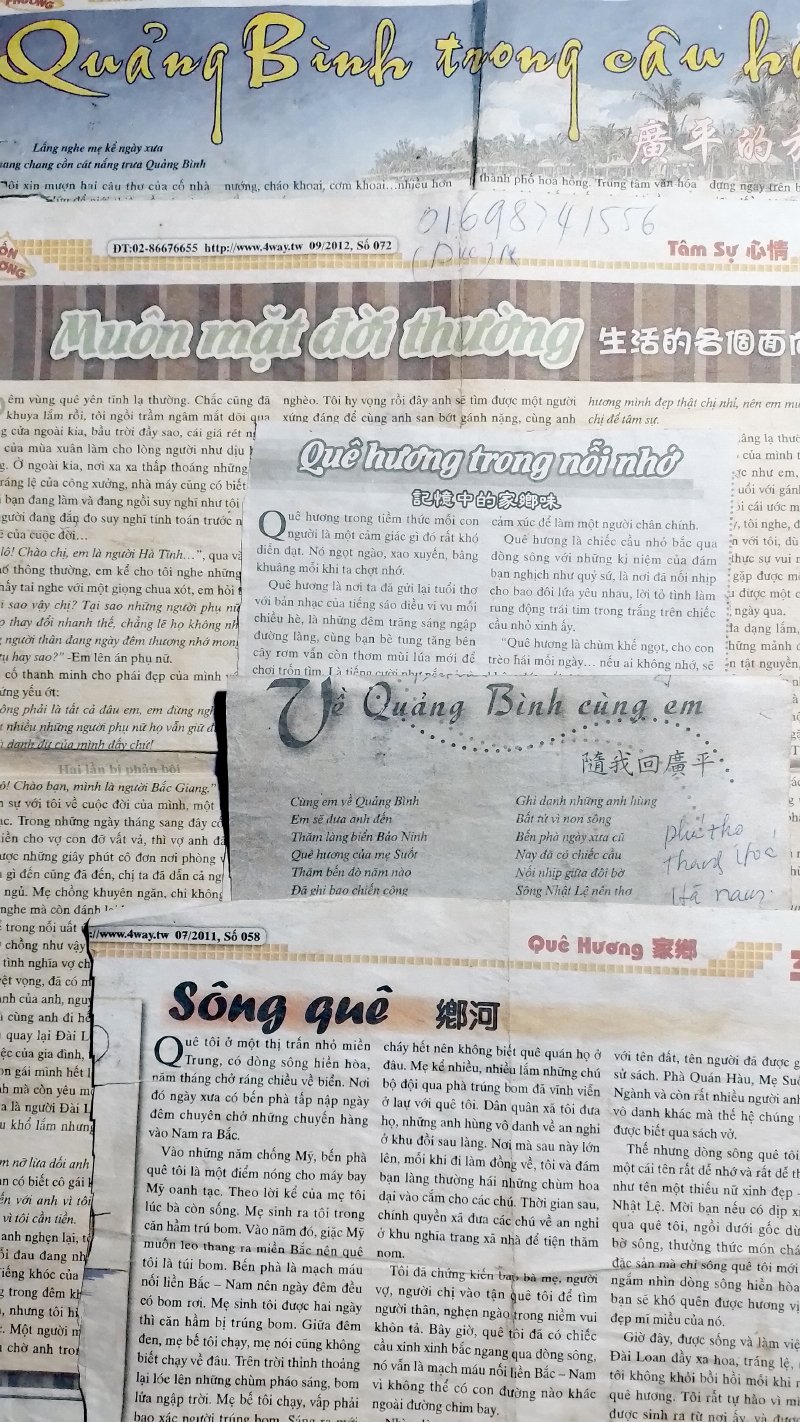 PHƯƠNG
Quảng Bình trong câu h
Lắng nghe mẹ kể ngày xưa
ang chang cồn cát nắng trưa Quảng Bình
廣平的
Tôi xin mượn hai câu thơ của cố nhà
nướng, cháo khoai, cơm khoai...nhiều hơn
thành phố hoa hồng. Trung tâm văn hóa
dựng ngay trên b
01698741556
ĐT:02-86676655 http://www.4way.tw 09/2012, Số 072
Tâm Sự 心情
Muôn mặt đời thường 生活的各個面向
êm vùng quê yên tĩnh lạ thường. Chắc cũng đã
khuya lắm rồi, tôi ngồi trầm ngâm mắt dõi qua
g cửa ngoài kia, bầu trời đầy sao, cái giá rét n
của mùa xuân làm cho lòng người như dịu
g. Ở ngoài kia, nơi xa xa thấp thoáng những
ráng lệ của công xưởng, nhà máy cũng có biết
bạn đang làm và đang ngồi suy nghĩ như tôi
gười đang đắn đo suy nghĩ tính toán trước n
ẽ của cuộc đời...
lô! Chào chị, em là người Hà Tĩnh...”, qua v
ố thông thường, em kể cho tôi nghe những
hấy tai nghe với một giọng chua xót, em hỏi
i sao vậy chị? Tại sao những người phụ nữ
ọ thay đổi nhanh thế, chẳng lẽ họ không nh
g người thân đang ngày đêm thương nhớ mong
ụ hay sao?” -Em lên án phụ nữ.
cố thanh minh cho phái đẹp của mình
ứng yếu ớt:
ông phải là tất cả đâu em, em đừng ng
t nhiều những người phụ nữ họ vẫn giữ đ
à danh dự của mình đấy chứ!
Hai lần bị phản bội
ô! Chào bạn, mình là người Bắc Giang.”
n sự với tôi về cuộc đời của mình, một
ạc. Trong những ngày tháng sang đây có
iền cho vợ con đỡ vất vả, thì vợ anh đã
ược những giây phút cô đơn nơi phòng
g gì đến cũng đã đến, chị ta đã dẫn cả ng
ngủ. Mẹ chồng khuyên ngăn, chị không
nghe mà còn đánh
nghèo. Tôi hy vọng rồi đây anh sẽ tìm được một người
xứng đáng để cùng anh san bớt gánh nặng, cùng anh
hương mình đẹp thật chị nhỉ, nên em mu
chị để tâm sự.
Quê hương trong nỗi nhớ
記憶中的家鄉味
Quê hương trong tiềm thức mỗi con
người là một cảm giác gì đó rất khó
diễn đạt. Nó ngọt ngào, xao xuyến, bâng
khuâng mỗi khi ta chợt nhớ.
Quê hương là nơi ta đã gửi lại tuổi thơ
với bản nhạc của tiếng sáo diều vi vu mỗi
chiều hè, là những đêm trăng sáng ngập
đường làng, cùng bạn bè tung tăng bên
cây rơm vẫn còn thơm mùi lúa mới để
chơi trốn tìm. Là tiếng cười như
cảm xúc để làm một người chân chính.
Quê hương là chiếc cầu nhỏ bắc qua
dòng sông với những kỉ niệm của đám
bạn nghịch như quỷ sứ, là nơi đã nối nhịp
cho bao đôi lứa yêu nhau, lời tỏ tình làm
rung động trái tim trong trắng trên chiếc
cầu nhỏ xinh ấy.
“Quê hương là chùm khế ngọt, cho con
trèo hái mỗi ngày... nếu ai không nhớ, sẽ
Về Quảng Bình cùng em
隨我回廣平
Cùng em về Quảng Bình
Em sẽ đưa anh đến
Thăm làng biển Bảo Ninh
Quê hương của mẹ Suốt
Thăm bến đò năm nào
Đã ghi bao chiến công
Ghi danh những anh hùng
Bất tử vì non sông
Bến phà ngày xưa cũ
Nay đã có chiếc cầu
Nối nhịp giữa đôi bờ
Sông Nhật Lệ nên thơ
phú thọ
Thanh Hoá
Hà nam
://www.4way.tw 07/2011, Số 058
Quê Hương 家鄉
Sông quê 鄉河
Quê tôi ở một thị trấn nhỏ miền
Trung, có dòng sông hiền hòa,
năm tháng chở ráng chiều về biển. Nơi
đó ngày xưa có bến phà tấp nập ngày
đêm chuyên chở những chuyến hàng
vào Nam ra Bắc.
Vào những năm chống Mỹ, bến phà
quê tôi là một điểm nóng cho máy bay
Mỹ oanh tạc. Theo lời kể của mẹ tôi
lúc bà còn sống. Mẹ sinh ra tôi trong
căn hầm trú bom. Vào năm đó, giặc Mỹ
muốn leo thang ra miền Bắc nên quê
tôi là túi bom. Bến phà là mạch máu
nối liền Bắc – Nam nên ngày đêm đều
có bom rơi. Mẹ sinh tôi được hai ngày
thì căn hầm bị trúng bom. Giữa đêm
đen, mẹ bế tôi chạy, mẹ nói cũng không
biết chạy về đâu. Trên trời thỉnh thoảng
lại lóe lên những chùm pháo sáng, bom
lửa ngập trời. Mẹ bế tôi chạy, vấp phải
bao xác người trúng bom.
cháy hết nên không biết quê quán họ ở
đâu. Mẹ kể nhiều, nhiều lắm những chú
bộ đội qua phà trúng bom đã vĩnh viễn
ở lại với quê tôi. Dân quân xã tôi đưa
họ, những anh hùng vô danh về an nghỉ
ở khu đồi sau làng. Nơi mà sau này lớn
lên, mỗi khi đi làm đồng về, tôi và đám
bạn làng thường hái những chùm hoa
dại vào cắm cho các chú. Thời gian sau,
chính quyền xã đưa các chú về an nghỉ
ở khu nghĩa trang xã nhà để tiện thăm
nom.
Tôi đã chứng kiến bao bà mẹ, người
vợ, người chị vào tận quê tôi để tìm
người thân, nghẹn ngào trong niềm vui
khôn tả. Bây giờ, quê tôi đã có chiếc
cầu xinh xinh bắc ngang qua dòng sông,
nó vẫn là mạch máu nối liền Bắc – Nam
vì không thể có con đường nào khác
ngoài đường chim bay.
với tên đất, tên người đã được g
sử sách. Phà Quán Hàu, Mẹ Su
Ngành và còn rất nhiều người anh
vô danh khác mà thế hệ chúng
được biết qua sách vở.
Thế nhưng dòng sông quê tôi
một cái tên rất dễ nhớ và rất dễ th
như tên một thiếu nữ xinh đẹp
Nhật Lệ. Mời bạn nếu có dịp x
qua quê tôi, ngồi dưới gốc dừ
bờ sông, thưởng thức món chá
đặc sản mà chỉ sông quê tôi mới
ngắm nhìn dòng sông hiền hòa
bạn sẽ khó quên được hương vị
đẹp mĩ miều của nó.
Giờ đây, được sống và làm việ
Đài Loan đầy xa hoa, tráng lệ,
tôi không khỏi bồi hồi mỗi khi n
quê hương. Tôi rất tự hào vì mì
được sinh ra từ nơi ấy, và đư